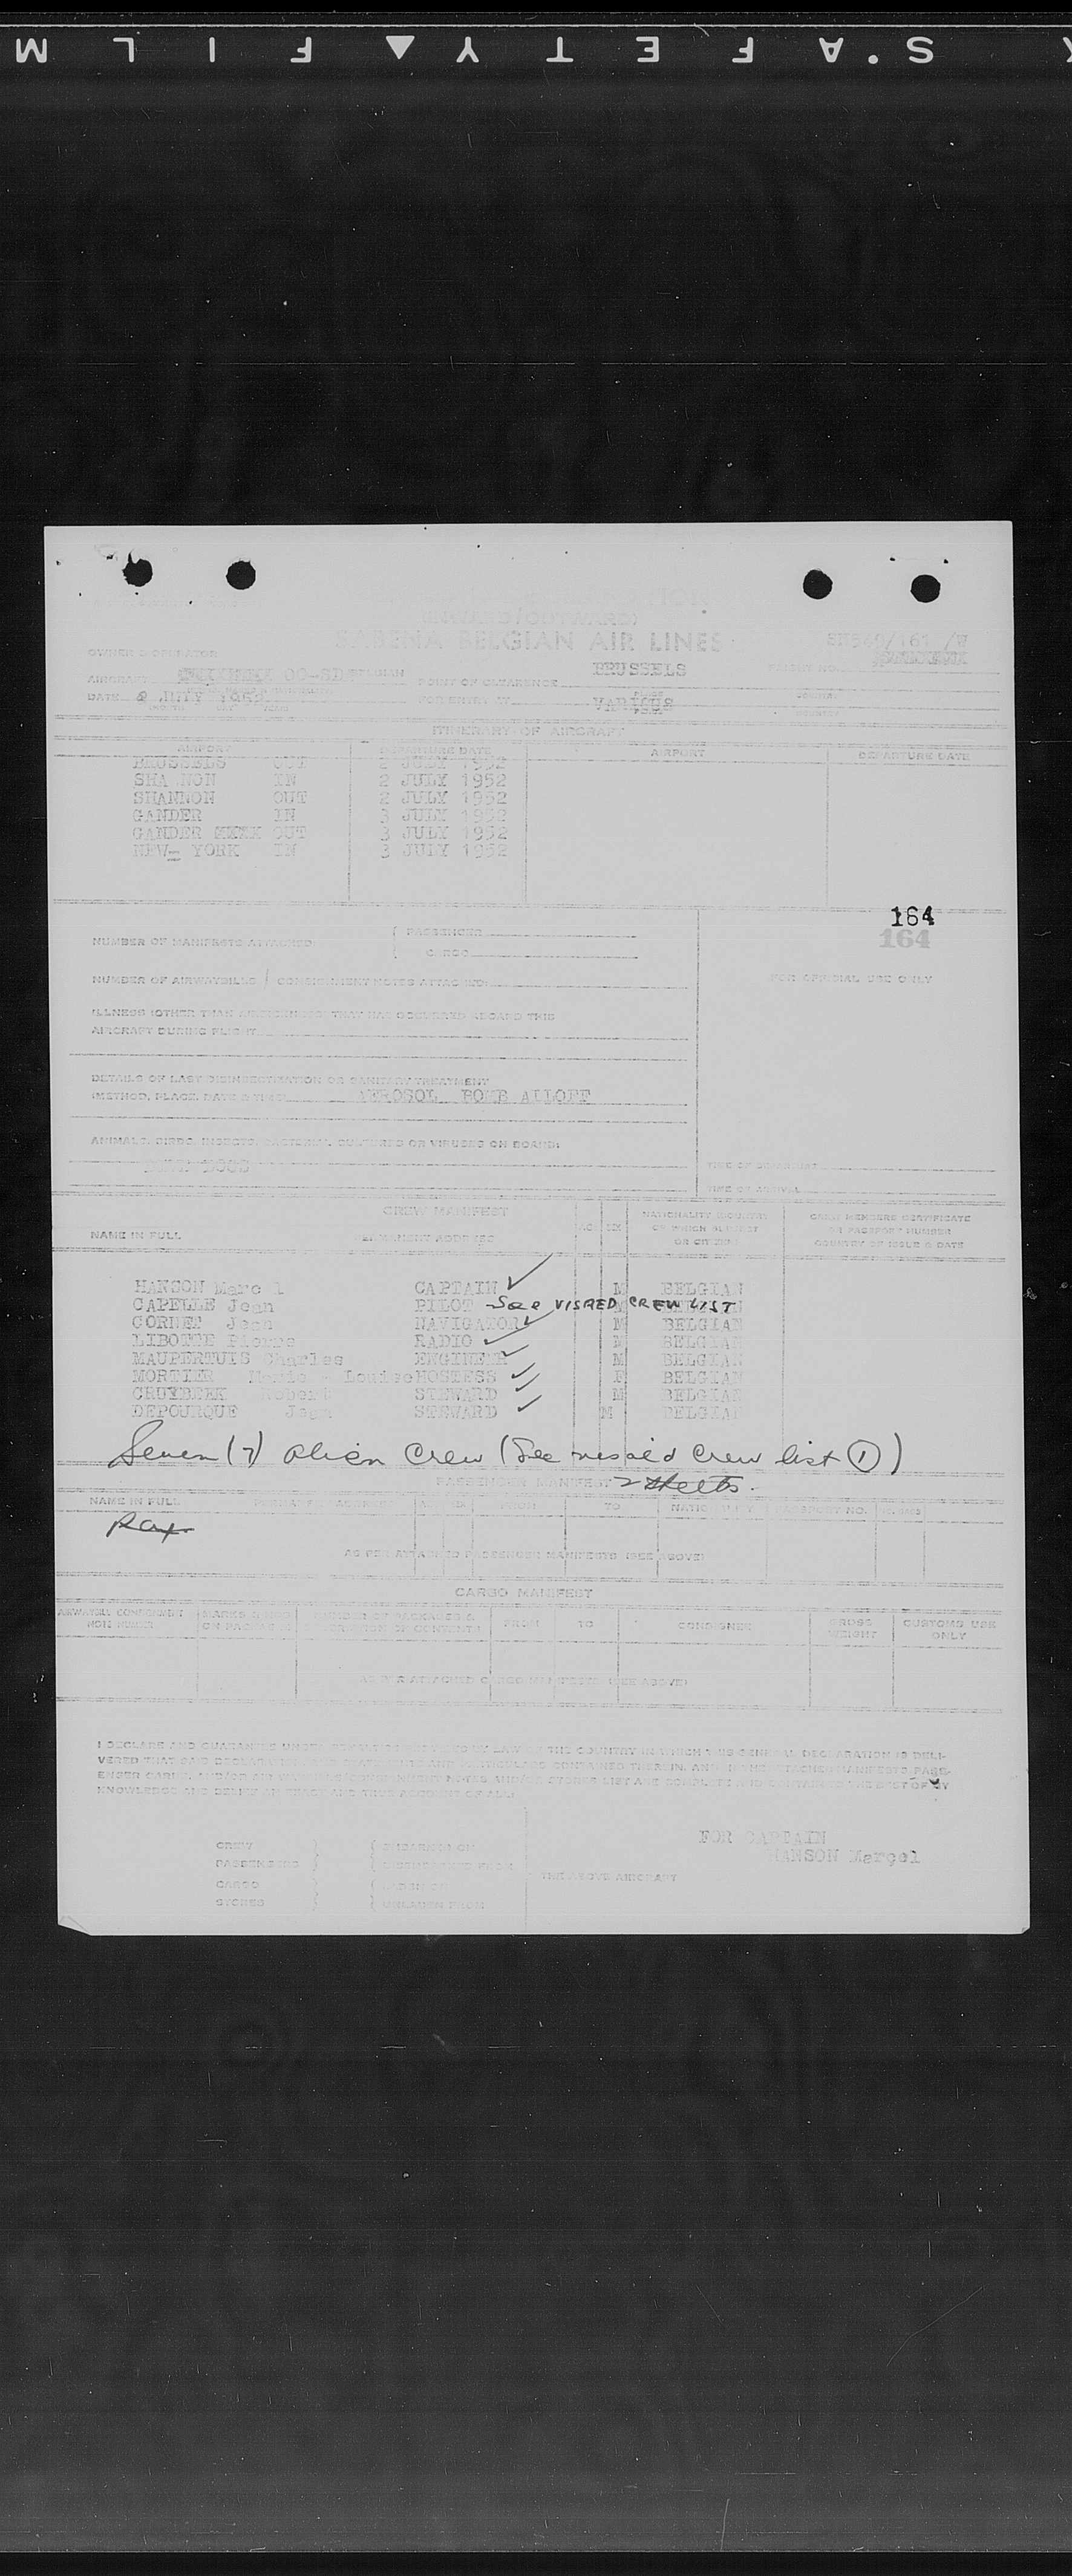 S'AFETY▲FILM
(INWARD/OUTWARD)
SABENA BELGIAN AIR LINES
OWNER & OPERATOR
SN540/161 /W
AIRCRAFT OO-SD POINT OF CLEARENCE BRUSSELS FLIGHT NO.
DATE JULY 1952 FOR ENTRY IN VARIOUS
ITINERARY OF AIRCRAFT
AIRPORT DEPARTURE DATE AIRPORT DEPARTURE DATE
BRUSSELS OUT 2 JULY 1952
SHA NON IN 2 JULY 1952
SHANNON OUT 2 JULY 1952
GANDER IN 3 JULY 1952
GANDER OUT 3 JULY 1952
NEW- YORK IN 3 JULY 1952
164
164
NUMBER OF MANIFESTS ATTACHED: PASSENGER
CARGO
NUMBER OF AIRWAYBILLS / CONSIGNMENT NOTES ATTACHED:
FOR OFFICIAL USE ONLY
ILLNESS (OTHER THAN AIRSICKNESS) THAT HAS OCCURRED ABOARD THIS
AIRCRAFT DURING FLIGHT
DETAILS OF LAST DISINSECTISATION OR SANITARY TREATMENT
(METHOD, PLACE, DATE & TIME) AEROSOL BOMB ALLOFF
ANIMALS, BIRDS, INSECTS, BACTERIAL CULTURES OR VIRUSES ON BOARD:
TIME OF DEPARTURE
TIME OF ARRIVAL
CREW MANIFEST
NAME IN FULL PERMANENT ADDRESS AGE SEX NATIONALITY (COUNTRY OF WHICH SUBJECT OR CITIZEN) CREW MEMBERS CERTIFICATE OR PASSPORT NUMBER COUNTRY OF ISSUE & DATE
HANSON Marc l CAPTAIN ✓ M BELGIAN
CAPELLE Jean PILOT - See VISAED CREW LIST
CORNET Jean NAVIGATOR ✓ M BELGIAN
LIBOTTE Pierre RADIO ✓ M BELGIAN
MAUPERTUIS Charles ENGINEER ✓ M BELGIAN
MORTIER Marie - Louise HOSTESS ✓ F BELGIAN
CRUYBEEK Robert STEWARD ✓ M BELGIAN
DEPOURQUE Jean STEWARD ✓ M BELGIAN
Seven (7) alien Crew (See visaed crew list ①)
PASSENGER MANIFEST 2 sheets.
NAME IN FULL PERMANENT ADDRESS AGE SEX FROM TO NATIONALITY PASSPORT NO.
Pax
AS PER ATTACHED PASSENGER MANIFESTS (SEE ABOVE)
CARGO MANIFEST
AIRWAYBILL CONSIGNMENT NOTE NUMBER MARKS & NOS ON PACKAGES NUMBER OF PACKAGES & DESCRIPTION OF CONTENTS FROM TO CONSIGNEE GROSS WEIGHT CUSTOMS USE ONLY
AS PER ATTACHED CARGO MANIFESTS (SEE ABOVE)
I DECLARE AND GUARANTEE UNDER BY LAW OF THE COUNTRY IN WHICH THIS GENERAL DECLARATION IS DELI-
VERED THAT SAID AND PARTICULARS CONTAINED THEREIN, AND IN THE ATTACHED MANIFESTS PASS-
ENGER CARGO, AND/OR NOTES AND/OR STORES LIST ARE COMPLETE AND THE BEST OF MY
KNOWLEDGE AND BELIEF AN EXACT AND TRUE ACCOUNT OF ALL:
FOR CAPTAIN
HANSON Marcel
CREW EMBARKED ON
PASSENGERS DISEMBARKED FROM
THE ABOVE AIRCRAFT
CARGO LADEN ON
STORES UNLADEN FROM